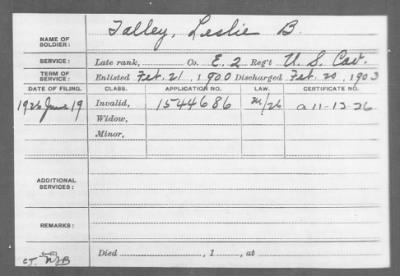 NAME OF SOLDIER: Talley, Leslie B.
SERVICE: Late rank, Co. E, 2 Reg't U. S. Cav.
TERM OF SERVICE: Enlisted Feb. 21, 1900 Discharged Feb. 20, 1903
DATE OF FILING. CLASS. APPLICATION NO. LAW. CERTIFICATE NO.
1926 June 19 Invalid, 1544686 a 11-13-26
Widow,
Minor,
ADDITIONAL SERVICES:
REMARKS:
Died , 1 , at